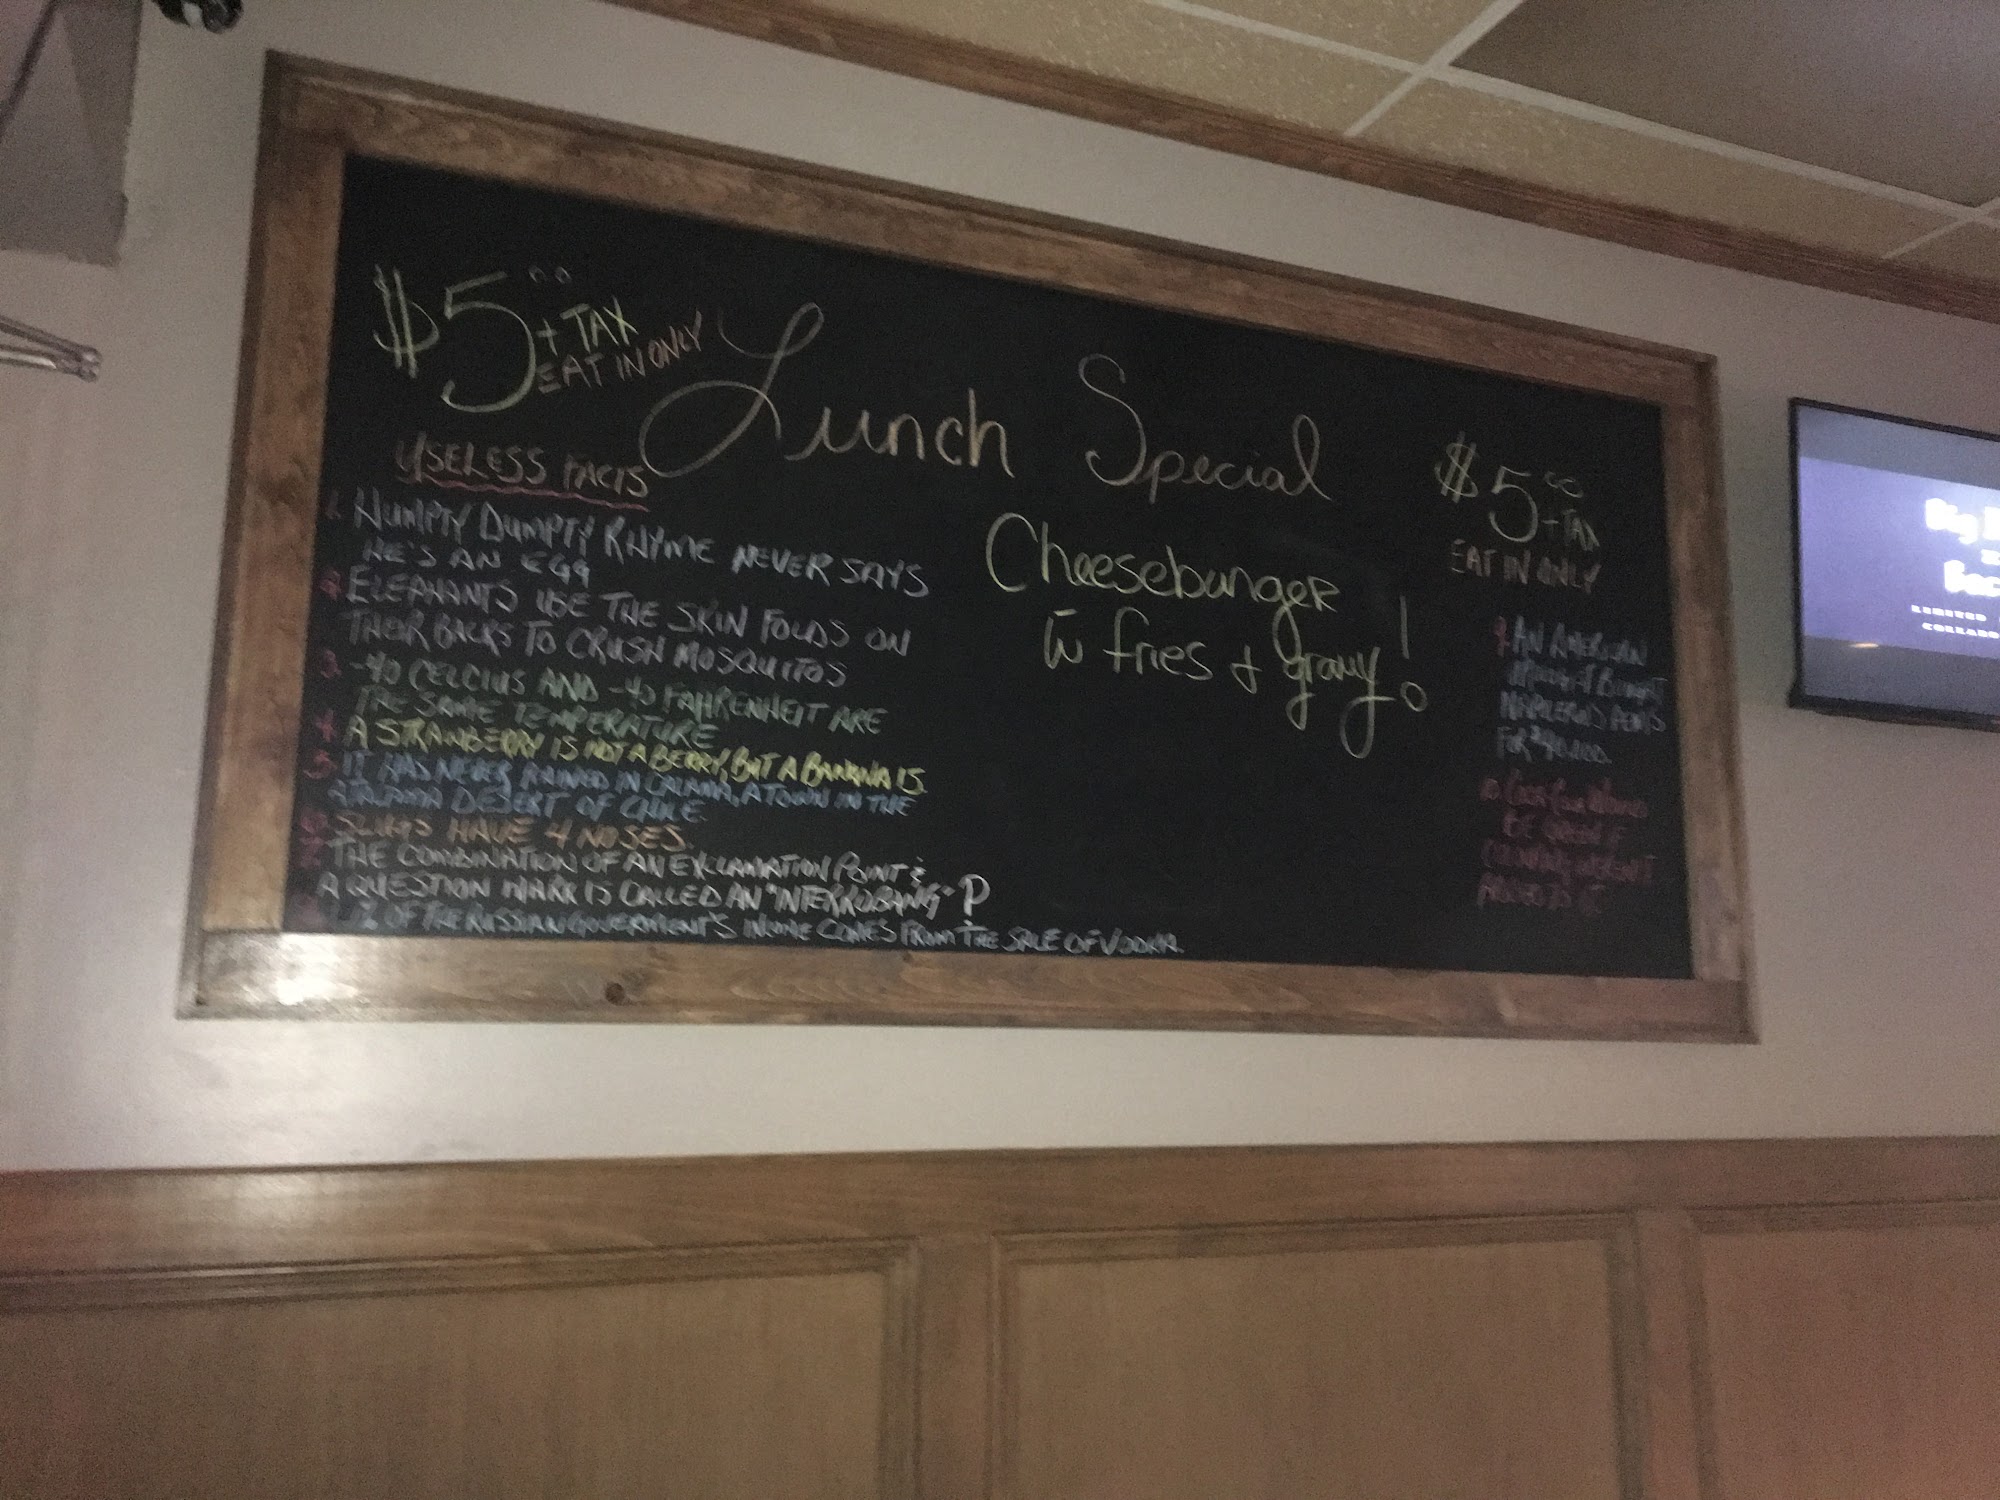 $5.00
+ TAX
EAT IN ONLY
Lunch Special
USELESS FACTS
1. HUMPTY DUMPTY RHYME NEVER SAYS
HE'S AN EGG
2. ELEPHANTS USE THE SKIN FOLDS ON
THEIR BACKS TO CRUSH MOSQUITOS
3. -40 CELCIUS AND -40 FAHRENHEIT ARE
THE SAME TEMPERATURE
4. A STRAWBERRY IS NOT A BERRY, BUT A BANANA IS.
5. IT HAS NEVER RAINED IN CALAMA, A TOWN IN THE
ATACAMA DESERT OF CHILE.
6. SLUGS HAVE 4 NOSES.
7. THE COMBINATION OF AN EXCLAMATION POINT &
A QUESTION MARK IS CALLED AN "INTERROBANG"
% OF THE RUSSIAN GOVERMENT'S INCOME COMES FROM THE SALE OF VODKA.
Cheeseburger
w fries + gravy!
$5.00
+ TAX
EAT IN ONLY
9. AN AMERICAN
BOUGHT
NAPLEON'S PENIS
FOR $40,000.
10. Coca Cola Would
BE GREEN IF
COLOURING WASN'T
ADDED TO IT
Big
LIMITED